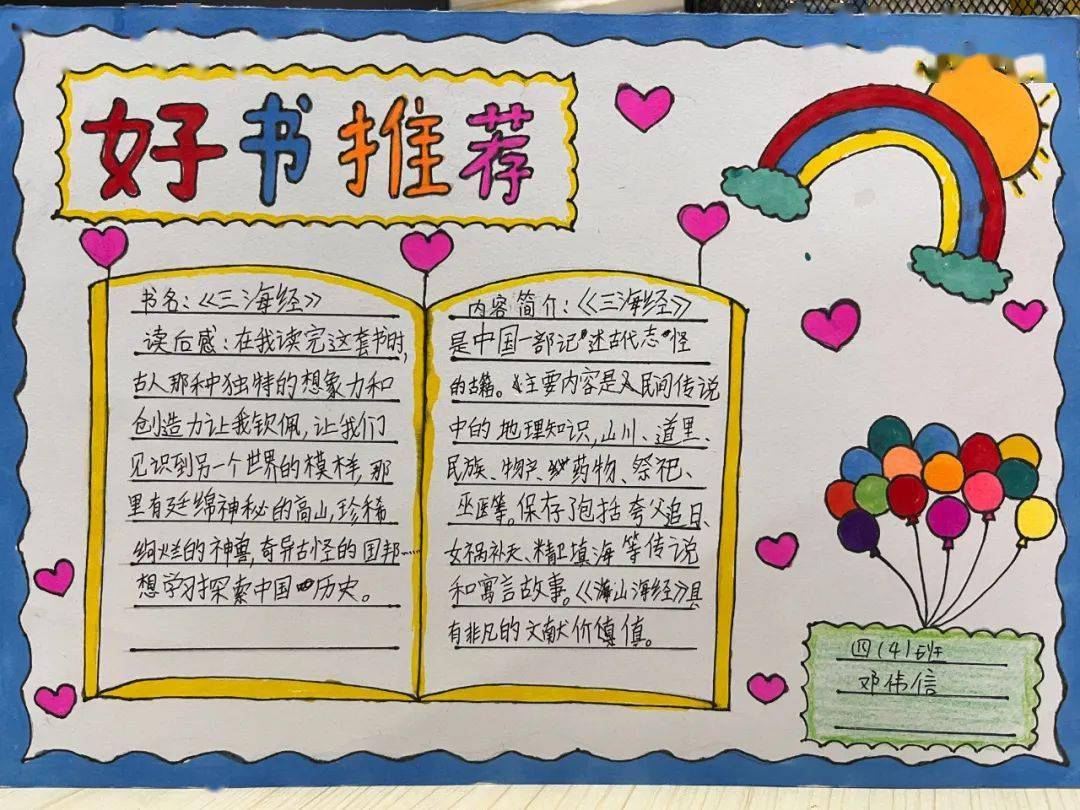 好书推荐
书名：《三海经》
读后感：在我读完这套书时，
古人那种独特的想象力和
创造力让我钦佩，让我们
见识到另一个世界的模样，那
里有延绵神秘的高山，珍稀
绚烂的神兽，奇异古怪的国邦……
想学习探索中国历史。
内容简介：《三海经》
是中国一部记述古代志怪
的古籍。主要内容是民间传说
中的地理知识，山川、道里、
民族、物产、药物、祭祀、
巫医等。保存了包括夸父追日、
女祸补天、精卫填海等传说
和寓言故事。《山海经》具
有非凡的文献价值。
四（4）班
邓伟信